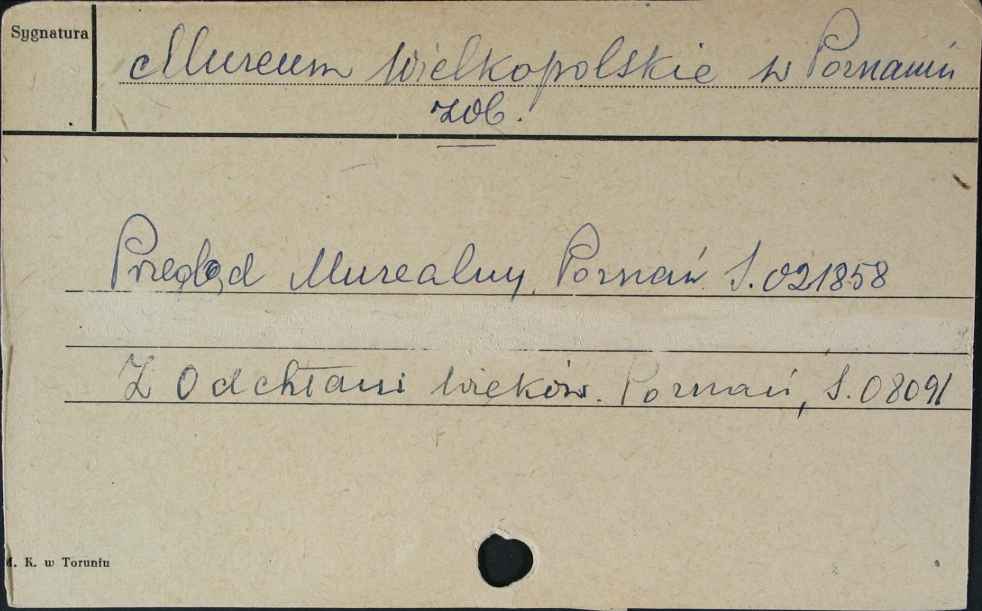 Sygnatura
Muzeum Wielkopolskie w Poznaniu
zob.
Przegląd Muzealny. Poznań S.021858
Z Odchłani wieków. Poznań, S.08091
M. K. w Toruniu